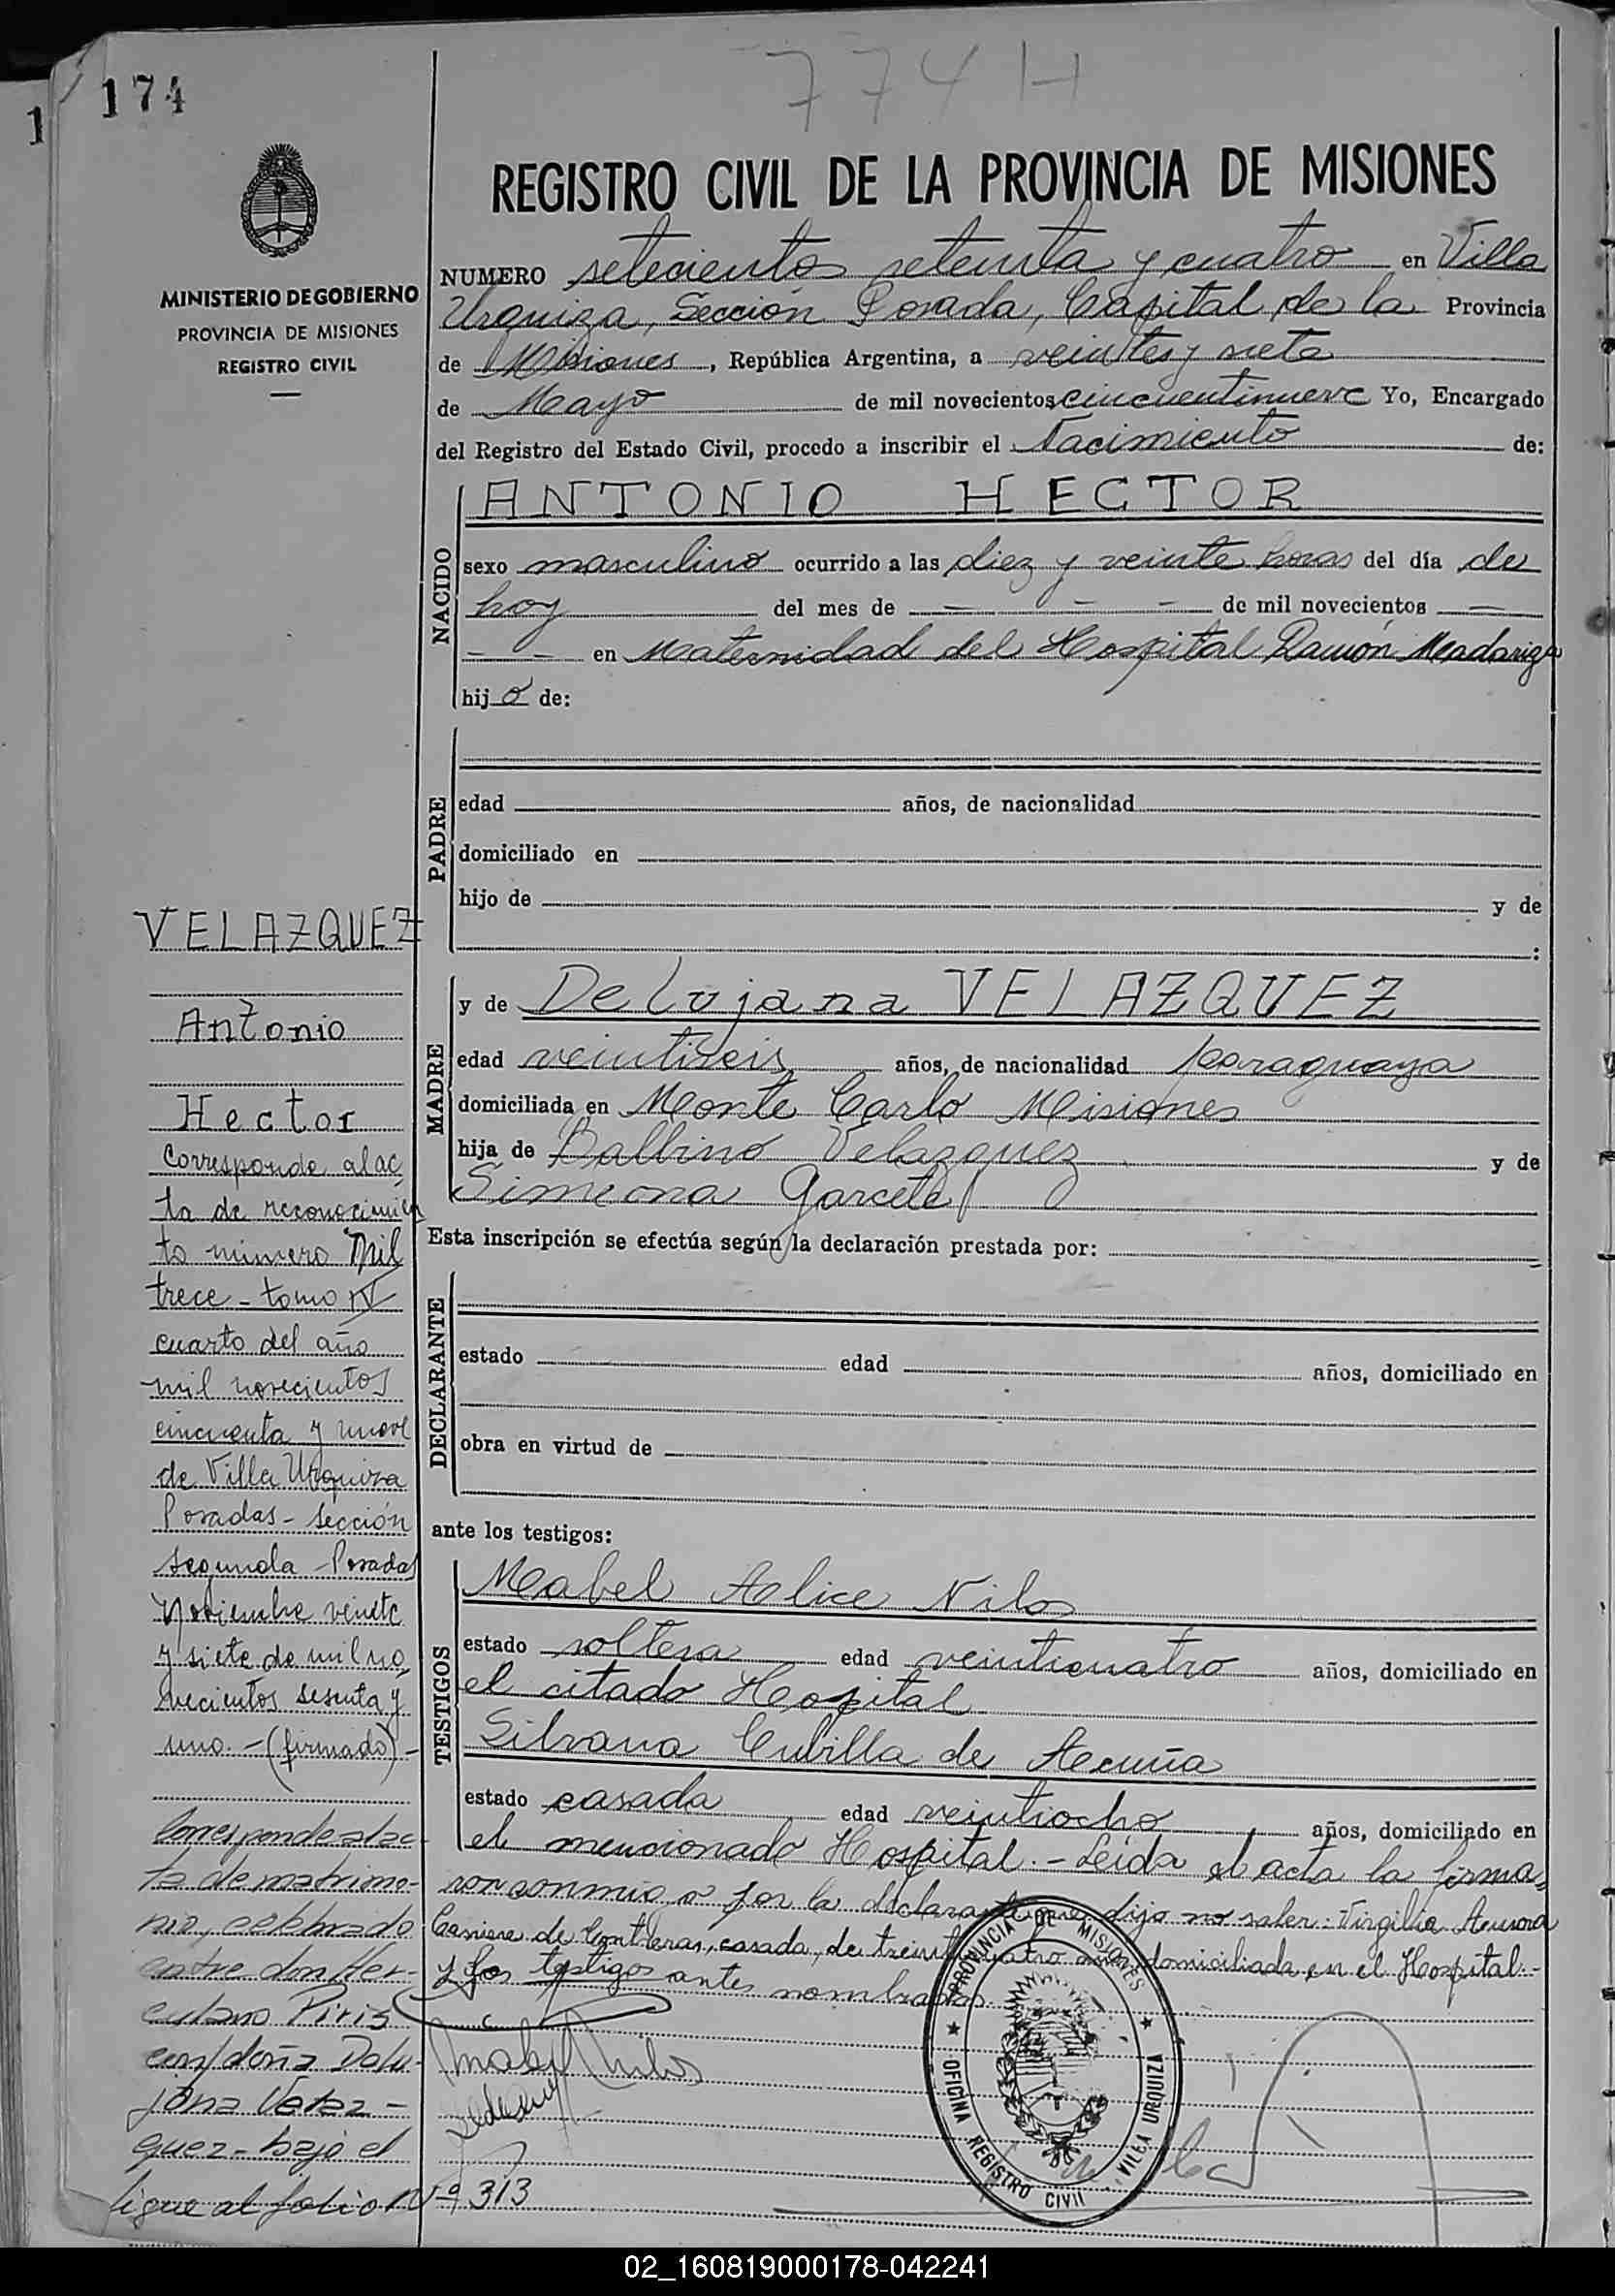 774 H
174
1
REGISTRO CIVIL DE LA PROVINCIA DE MISIONES
MINISTERIO DE GOBIERNO
PROVINCIA DE MISIONES
REGISTRO CIVIL
NUMERO setecientos setenta y cuatro en Villa
Urquiza, Sección Posada, Capital de la Provincia
de Misiones, República Argentina, a veintes y siete
de Mayo de mil novecientos cincuentinueve Yo, Encargado
del Registro del Estado Civil, procedo a inscribir el Nacimiento de:
NACIDO
ANTONIO HECTOR
sexo masculino ocurrido a las diez y veinte horas del día de
hoy del mes de - - - de mil novecientos -
- - en Maternidad del Hospital Ramón Madariaga
hijo de:
PADRE
edad años, de nacionalidad
domiciliado en
hijo de y de
:
MADRE
y de Delujana VELAZQUEZ
edad veintiseis años, de nacionalidad paraguaya
domiciliada en Monte Carlo Misiones
hija de Balbino Velazquez y de
Simeona Garcete
Esta inscripción se efectúa según la declaración prestada por:
DECLARANTE
estado edad años, domiciliado en
obra en virtud de
ante los testigos:
TESTIGOS
Mabel Alice Nilos
estado soltera edad veinticuatro años, domiciliado en
el citado Hospital
Silvana Cubilla de Acuña
estado casada edad veintiocho años, domiciliado en
el mencionado Hospital.- Leída el acta la firma,
ron conmigo por la declarante que dijo no saber: Virgilia Aurora
de Contreras, casada, de treinta cuatro años domiciliada en el Hospital.-
y los testigos antes nombrados.
VELAZQUEZ
Antonio
Hector
Corresponde al ac
ta de reconocimien
to número Mil
trece - tomo IV
cuarto del año
mil novecientos
cincuenta y nueve
de Villa Urquiza
Posadas - Sección
segunda - Posadas
Noviembre veinte
y siete de mil no,
vecientos sesenta y
uno. - (firmado) -
Corresponde al ac-
ta de matrimo-
nio, celebrado
entre don Her-
culano Piris
con doña Delu-
jana Velaz-
quez - bajo el
sigue al folio Nº 313
Mabel Nilos
PROVINCIA DE MISIONES
★ OFICINA REGISTRO CIVIL VILLA URQUIZA ★
02_160819000178-042241